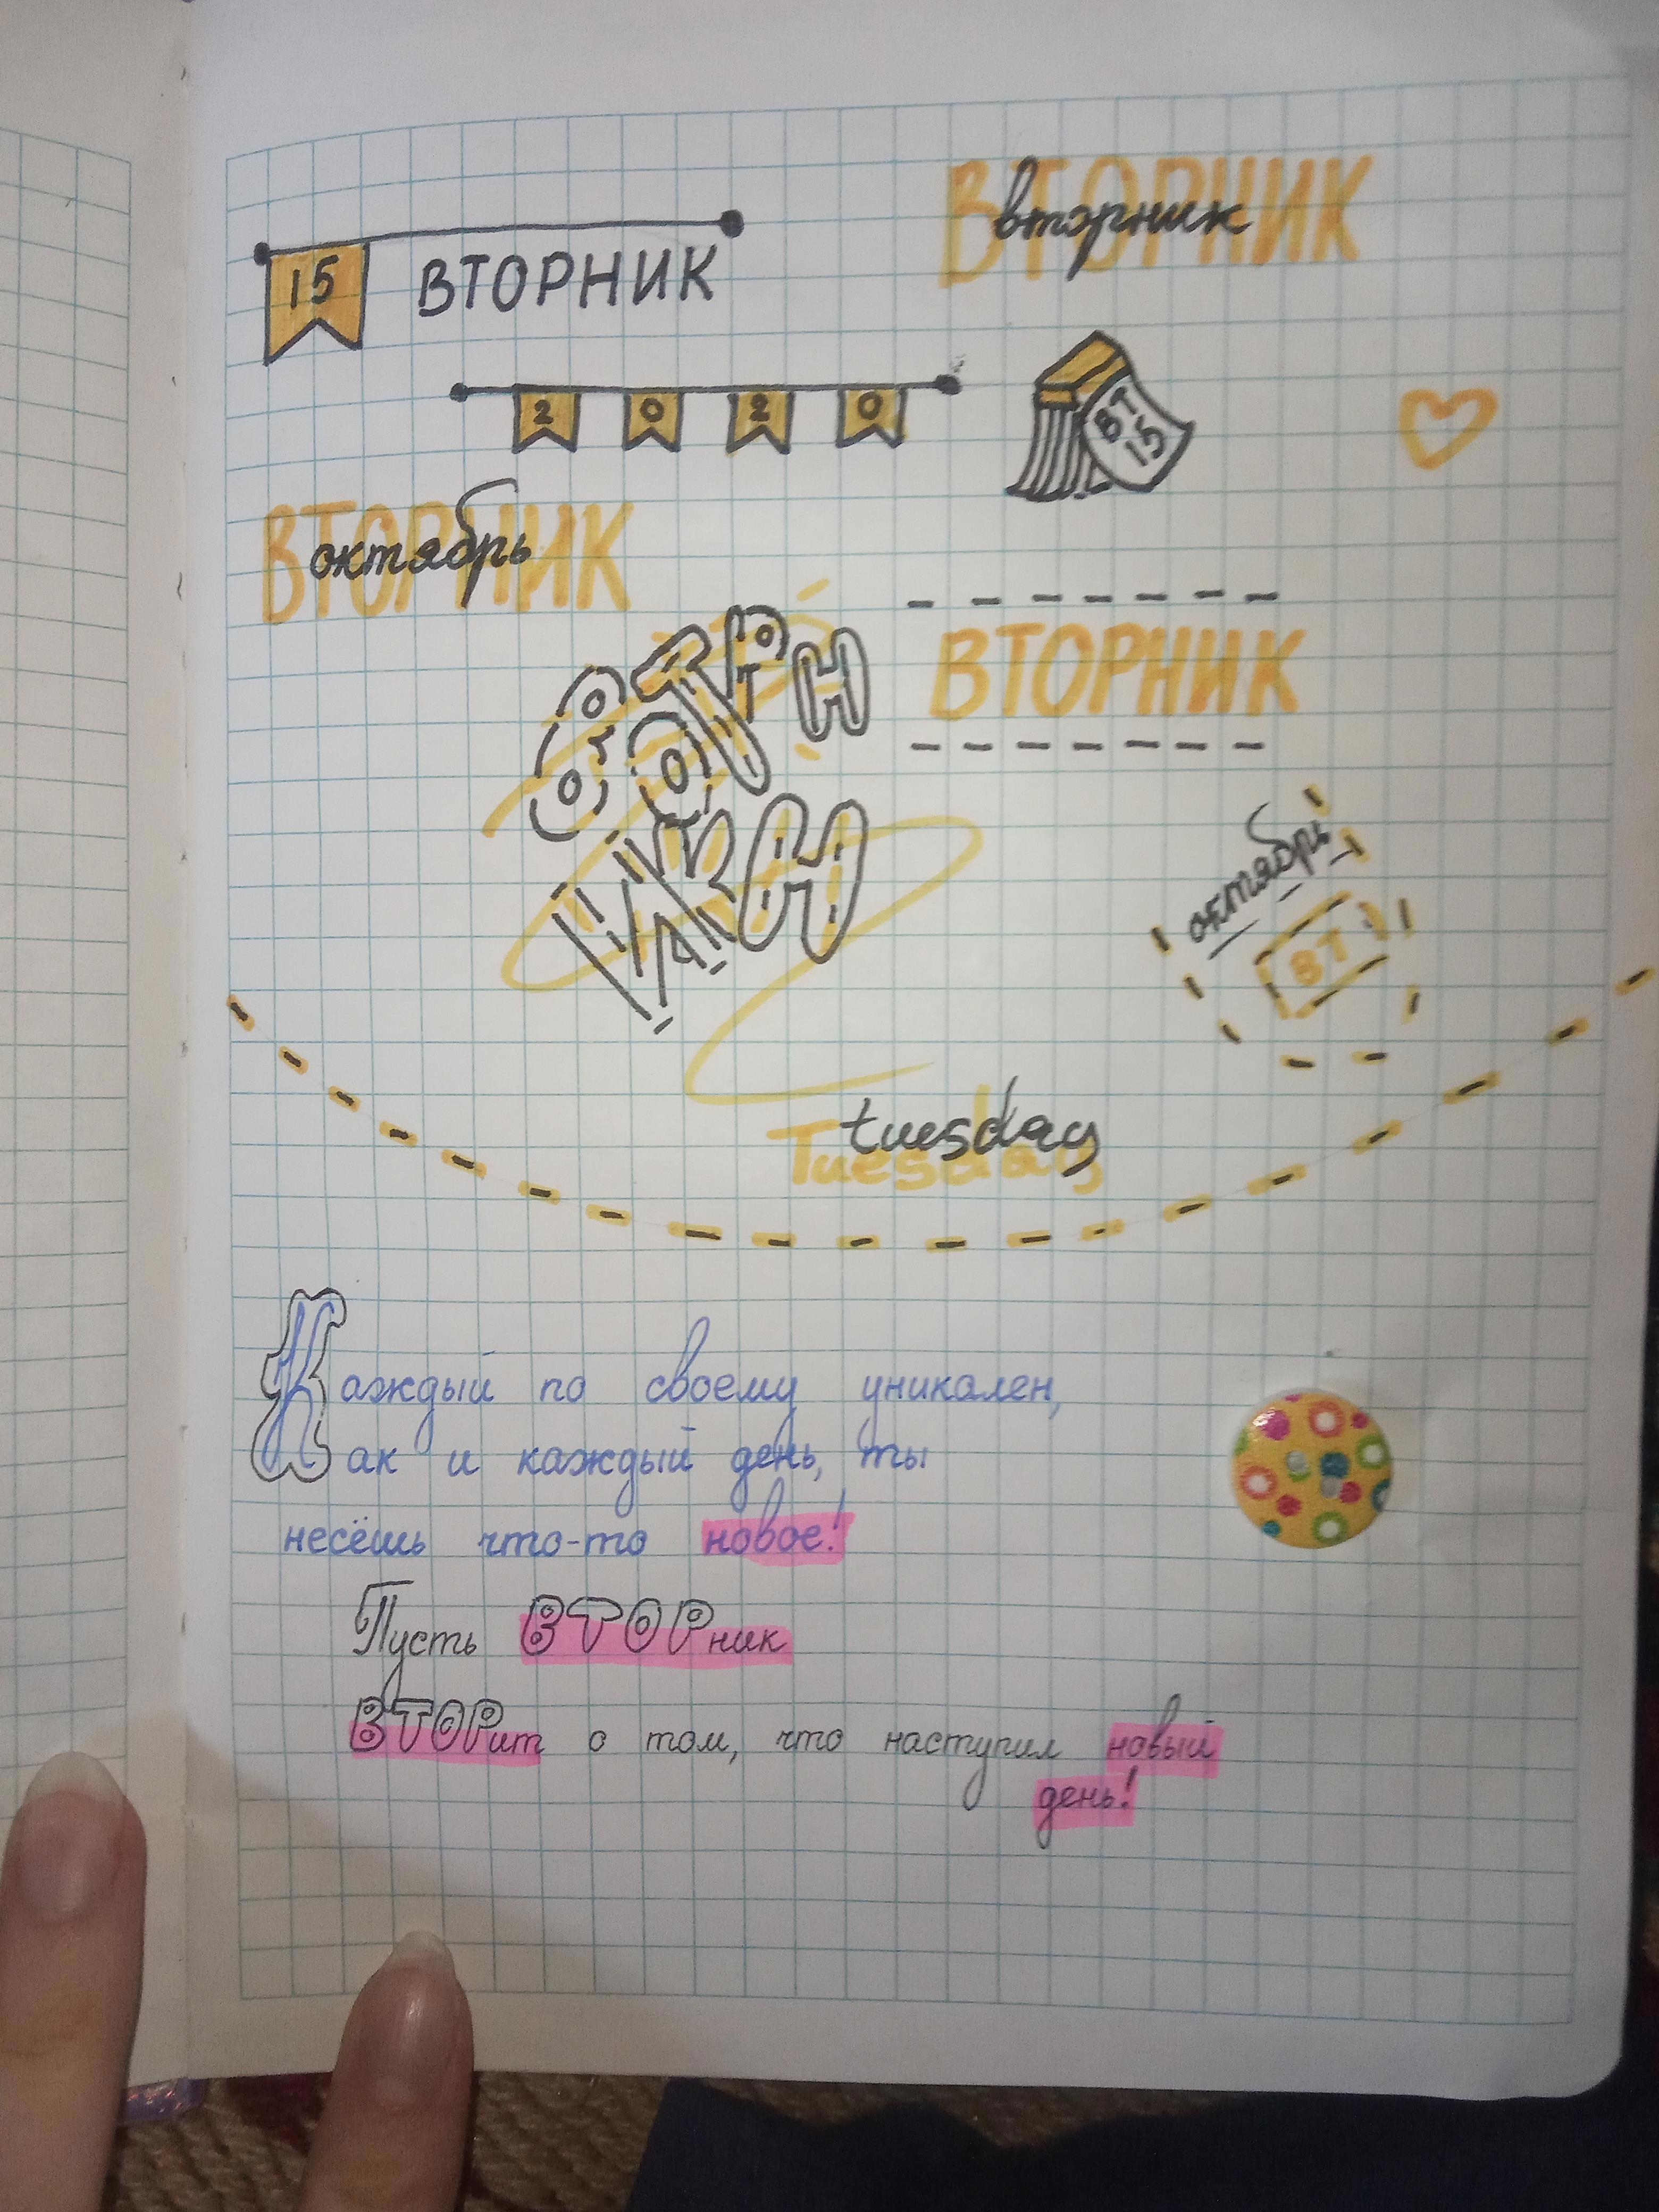 ВТОРНИК
вторник
15 ВТОРНИК
2020
ВТ
15
ВТОРНИК
октябрь
ВТОРНИК
октябрь
ВТ
Tuesday
tuesday
Каждый по своему уникален,
Как и каждый день, ты
несёшь что-то новое!
Пусть ВТОРник
ВТОРит о том, что наступил новый
день!